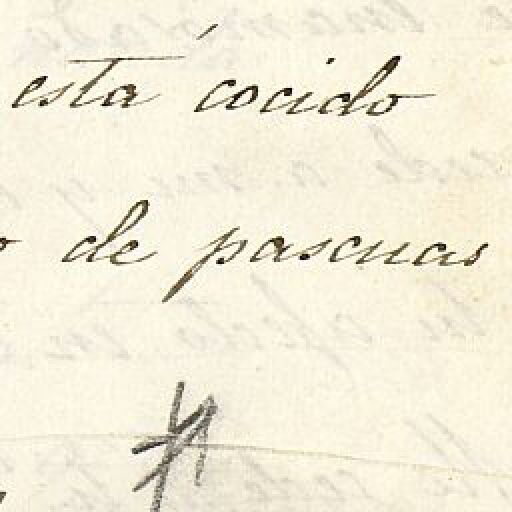 está cocido
o de pascuas